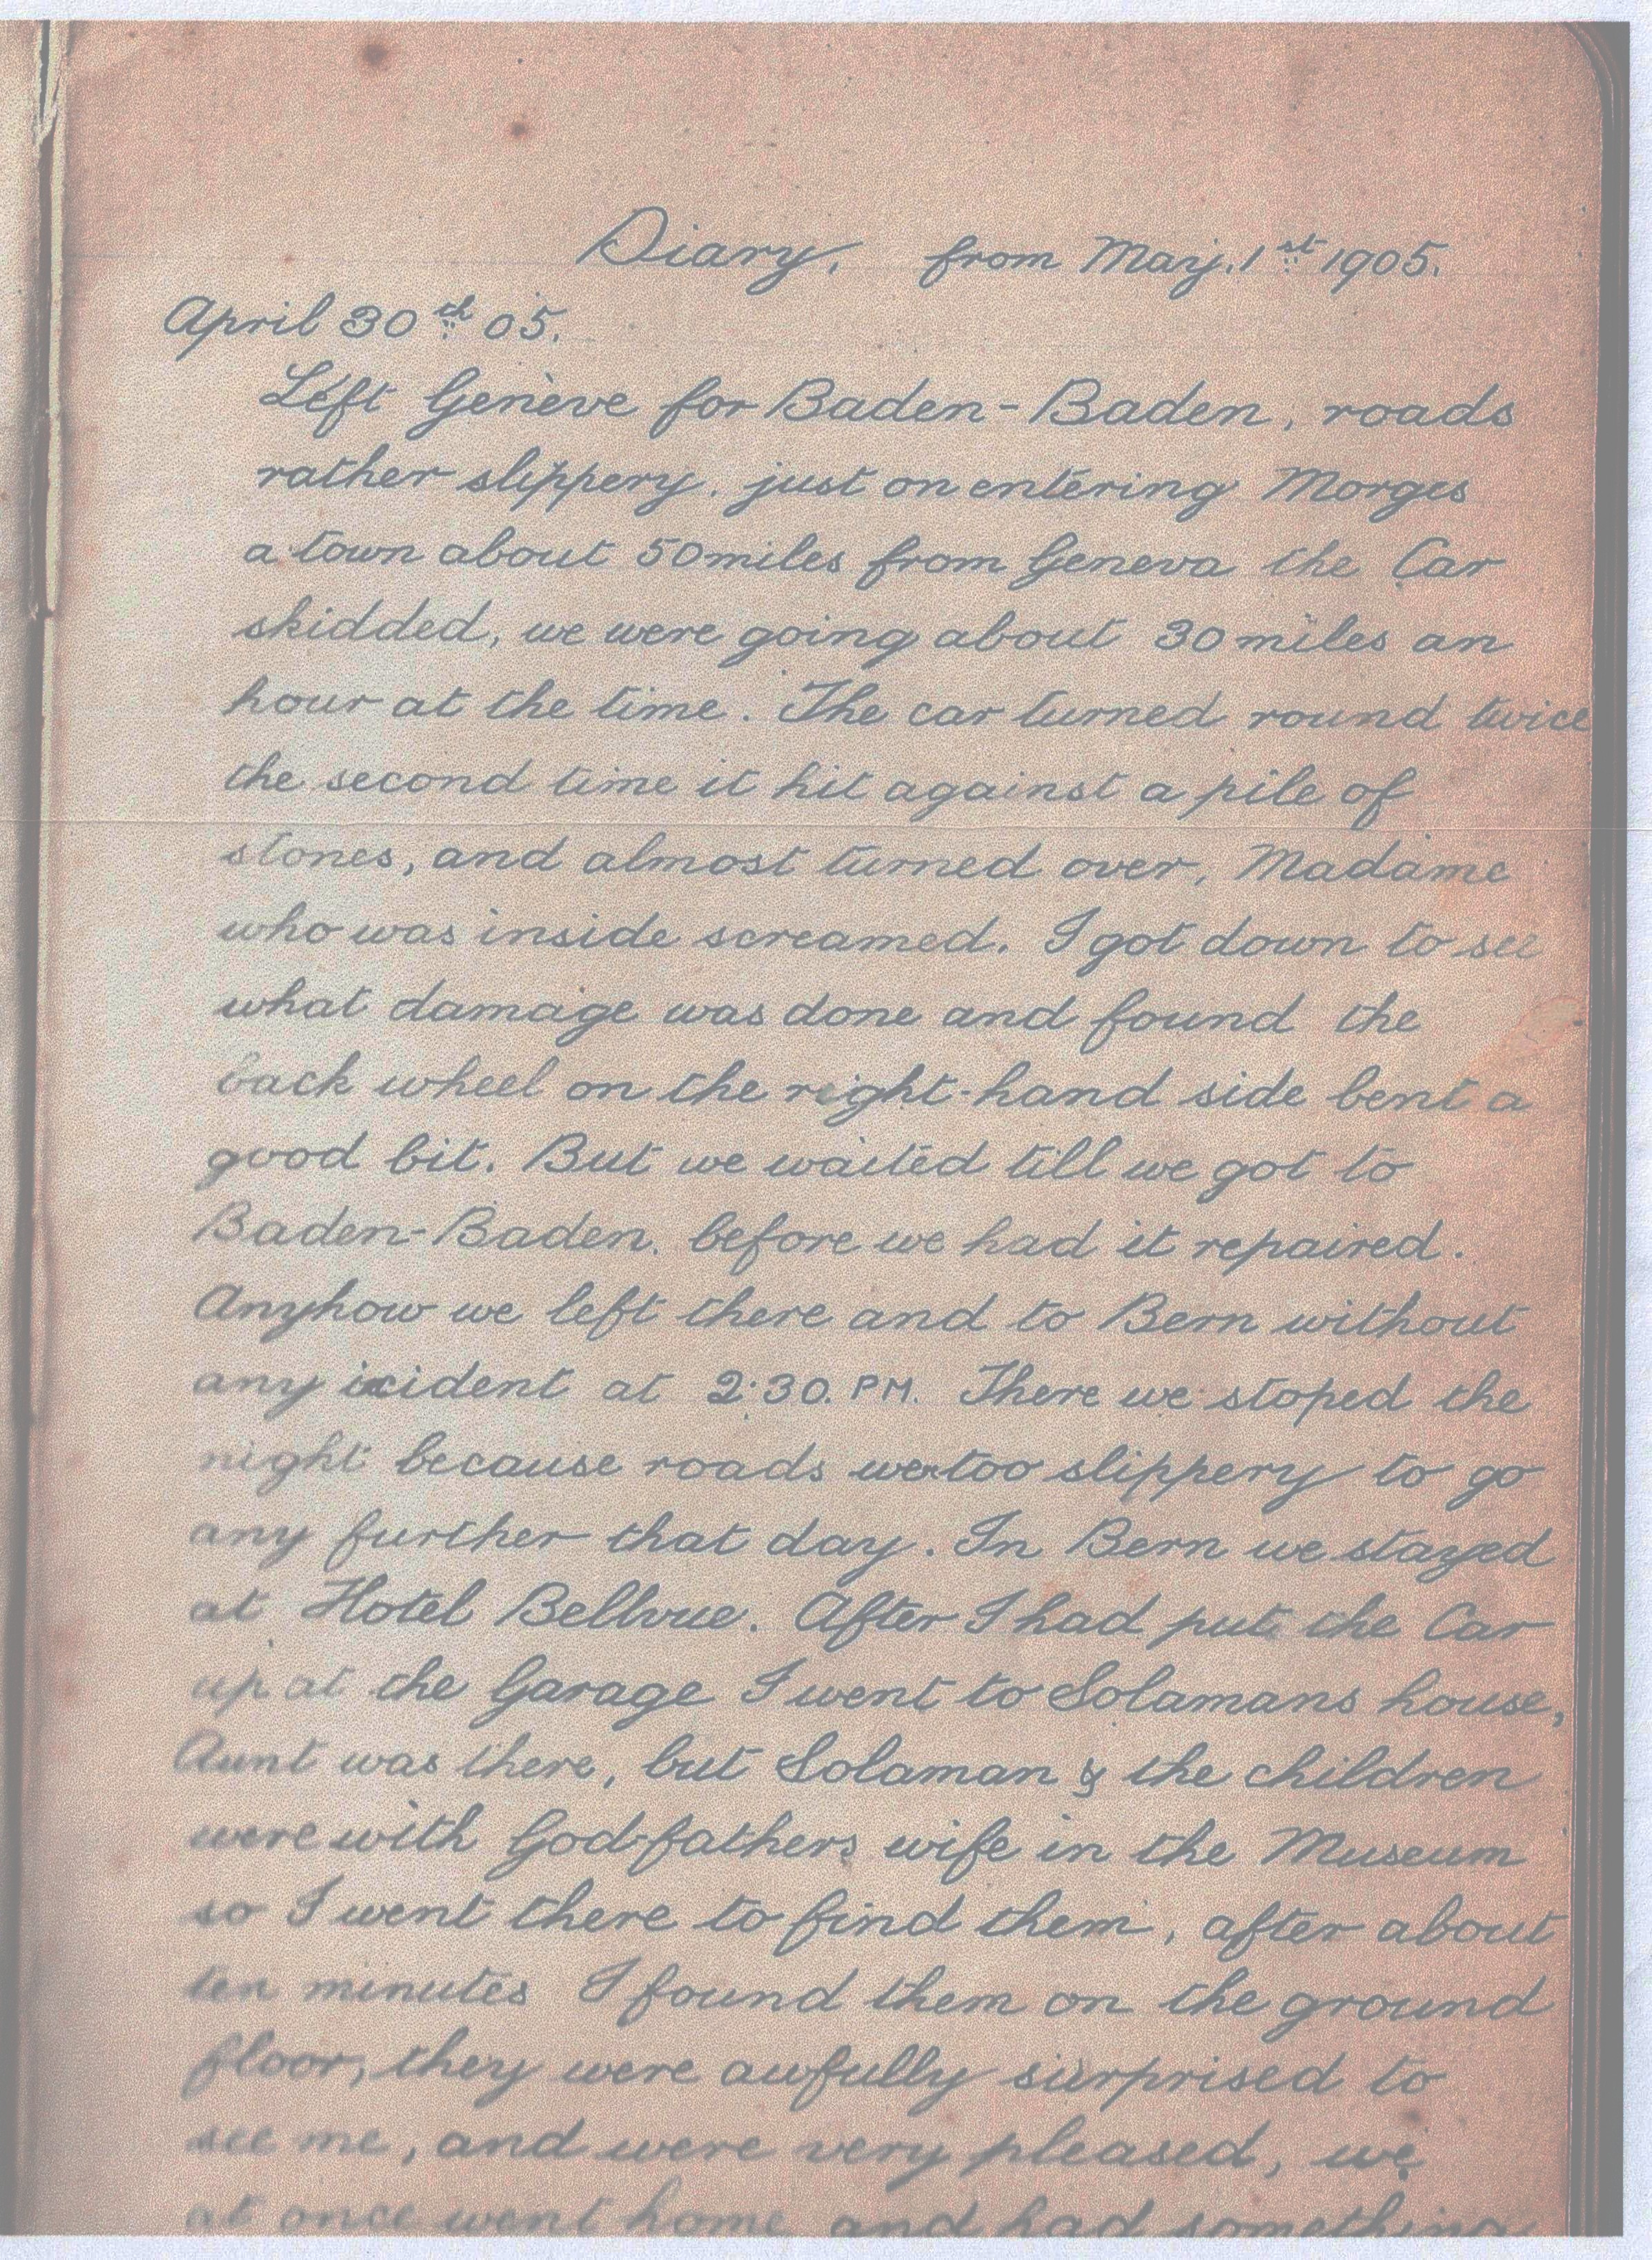 Diary. from May. 1st 1905.
April 30th 05.
Left Genève for Baden-Baden, roads
rather slippery. just on entering Morges
a town about 50 miles from Geneva the Car
skidded, we were going about 30 miles an
hour at the time. The car turned round twice
the second time it hit against a pile of
stones, and almost turned over, Madame
who was inside screamed. I got down to see
what damage was done and found the
back wheel on the right-hand side bent a
good bit. But we waited till we got to
Baden-Baden. before we had it repaired.
Anyhow we left there and to Bern without
any icident at 2.30. PM. There we stoped the
night because roads wer too slippery to go
any further that day. In Bern we stayed
at Hotel Bellvue. After I had put the Car
up at the Garage I went to Solamans house,
Aunt was there, but Solaman & the children
were with God-fathers wife in the Museum
so I went there to find them, after about
ten minutes I found them on the ground
floor, they were awfully surprised to
see me, and were very pleased, we
at once went home and had something